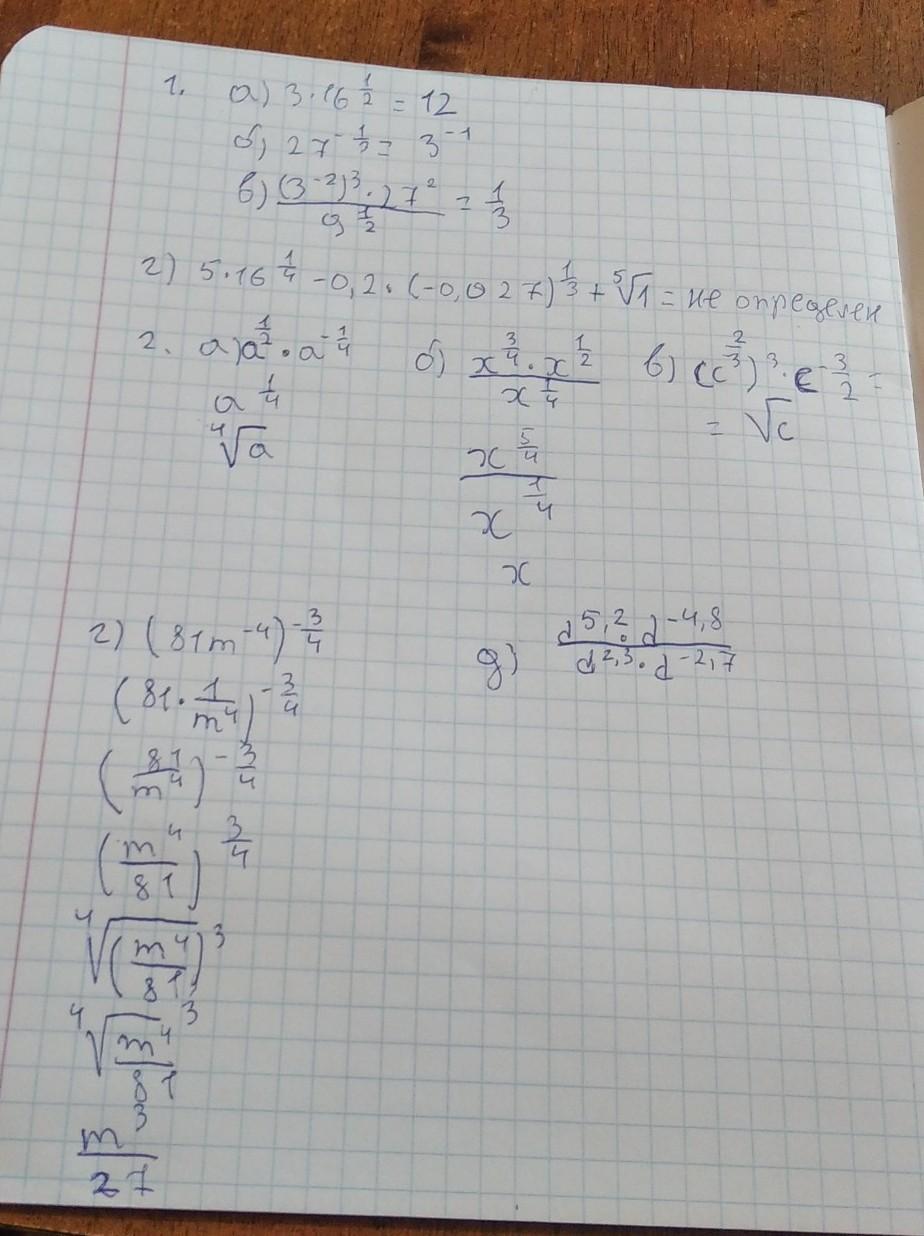 1. а) 3·16^{1/2} = 12
б) 27^{-1/3} = 3^{-1}
в) \frac{(3^{-2})^3 · 27^2}{9^{1/2}} = \frac{1}{3}
г) 5·16^{1/4} - 0,2·(-0,027)^{1/3} + \sqrt[5]{1} = не определен
2. а) a^{1/2} · a^{-1/4}
a^{1/4}
\sqrt[4]{a}
б) \frac{x^{3/4} · x^{1/2}}{x^{1/4}}
\frac{x^{5/4}}{x^{1/4}}
x
в) (c^{2/3})^3 · c^{-3/2} =
= \sqrt{c}
г) (81m^{-4})^{-3/4}
(81 · \frac{1}{m^4})^{-3/4}
(\frac{81}{m^4})^{-3/4}
(\frac{m^4}{81})^{3/4}
\sqrt[4]{(\frac{m^4}{81})^3}
\sqrt[4]{\frac{m^4}{81}}^3
\frac{m^3}{27}
д) \frac{d^{5,2} · d^{-4,8}}{d^{2,3} · d^{-2,7}}